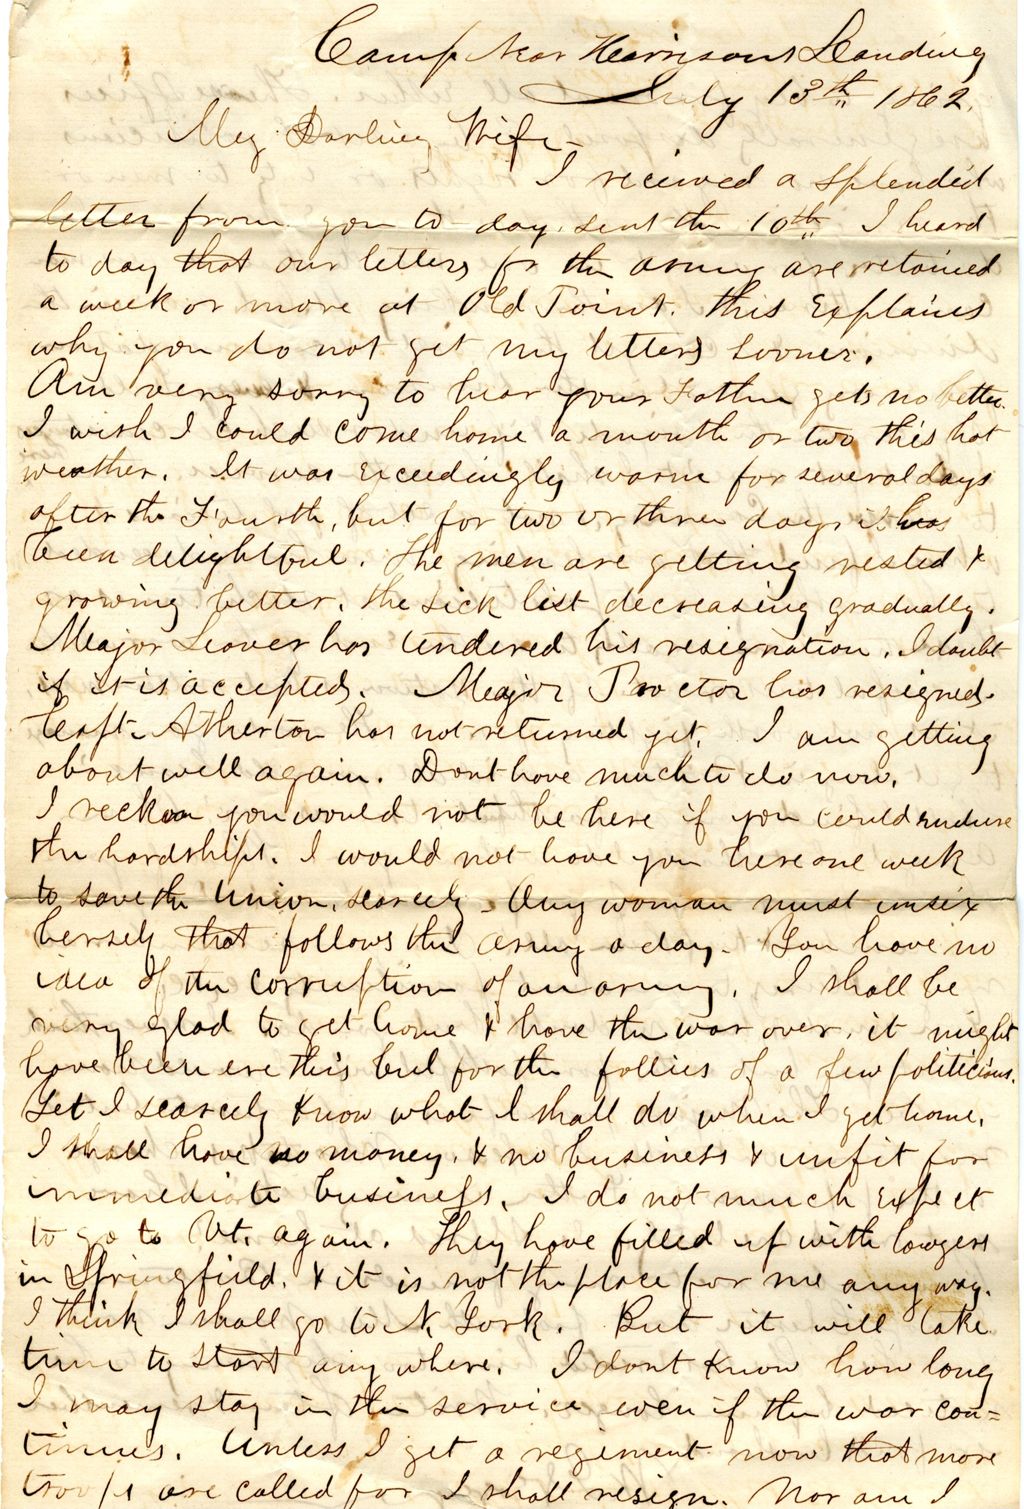 Camp Near Harrisons Landing
July 13th 1862.
My Darling Wife-
I recieved a splendid
letter from you to day, sent the 10th. I heard
to day that our letters for the army are retained
a week or more at Old Point. this explains
why you do not get my letters sooner.
Am very sorry to hear your Father gets no better.
I wish I could come home a month or two this hot
weather. It was exceedingly warm for several days
after the Fourth, but for two or three days it has
been delightful. The men are getting rested &
growing better. the sick list decreasing gradually.
Major Leaver has tendered his resignation. I doubt
if it is accepted. Major Proctor has resigned.
Capt. Atherton has not returned yet. I am getting
about well again. Dont have much to do now.
I reckon you would not be here if you could endure
the hardships. I would not have you here one week
to save the Union, scarcely. Any woman must unsex
herself that follows the army a day. You have no
idea of the corruption of an army. I shall be
very glad to get home & have the war over. it might
have been ere this but for the follies of a few politicians.
Yet I scarcely know what I shall do when I get home.
I shall have no money. & no business & unfit for
immediate business. I do not much expect
to go to Vt. again. They have filled up with lawyers
in Springfield. & it is not the place for me any way.
I think I shall go to N. York. But it will take
time to start any where. I dont know how long
I may stay in the service even if the war con=
tinues. Unless I get a regiment now that more
troops are called for I shall resign. Nor am I